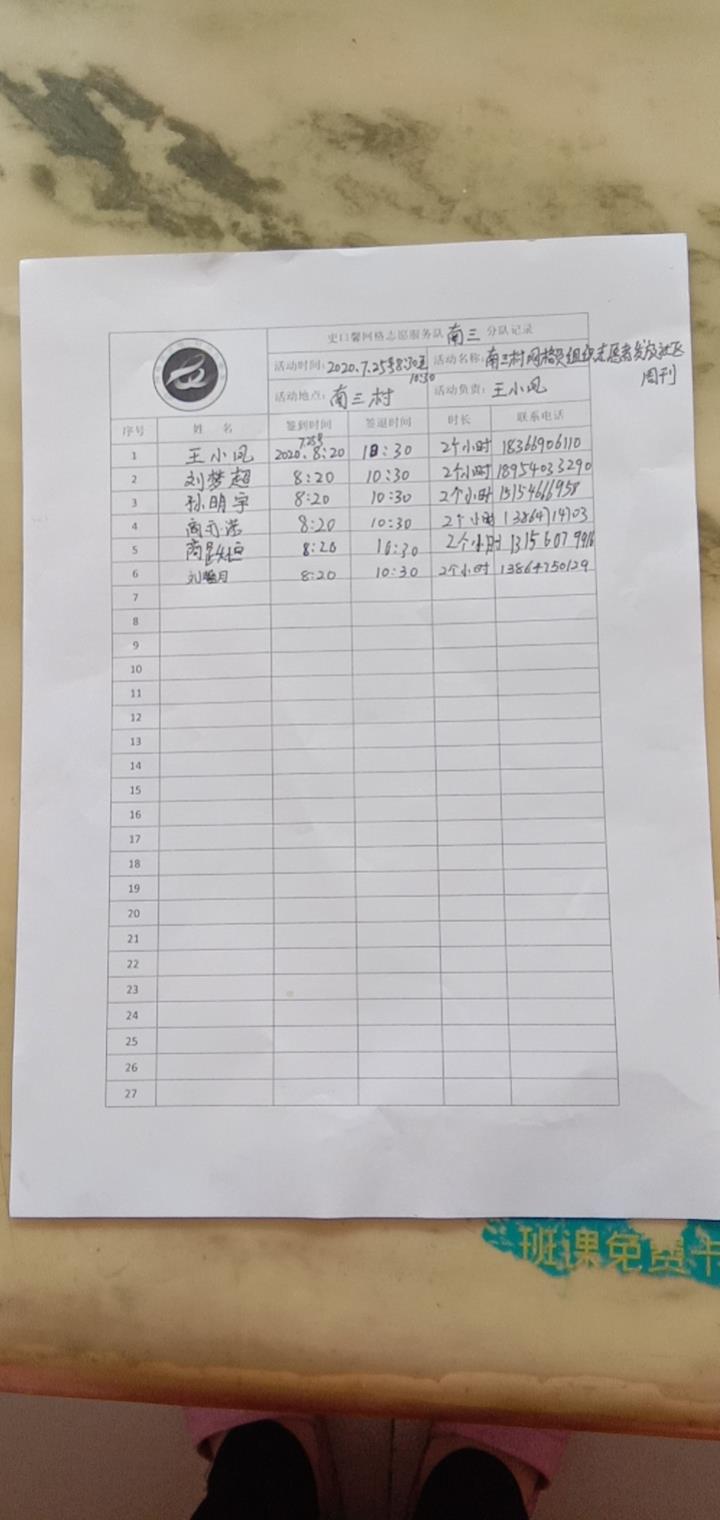 史口馨网格志愿服务队 南三 分队记录
活动时间：2020.7.25号8:30至10:30 活动名称：南三村网格员组织志愿者发放社区周刊
活动地点：南三村 活动负责：王小凤
序号 姓 名 签到时间 签退时间 时长 联系电话
1 王小凤 2020.7.25号 8:20 10:30 2个小时 18366906110
2 刘梦超 8:20 10:30 2个小时 18954033290
3 孙明宇 8:20 10:30 2个小时 15154666958
4 8:20 10:30 2个小时
5 8:20 10:30 2个小时
6 8:20 10:30 2个小时 13864750129
7
8
9
10
11
12
13
14
15
16
17
18
19
20
21
22
23
24
25
26
27
班课免费卡